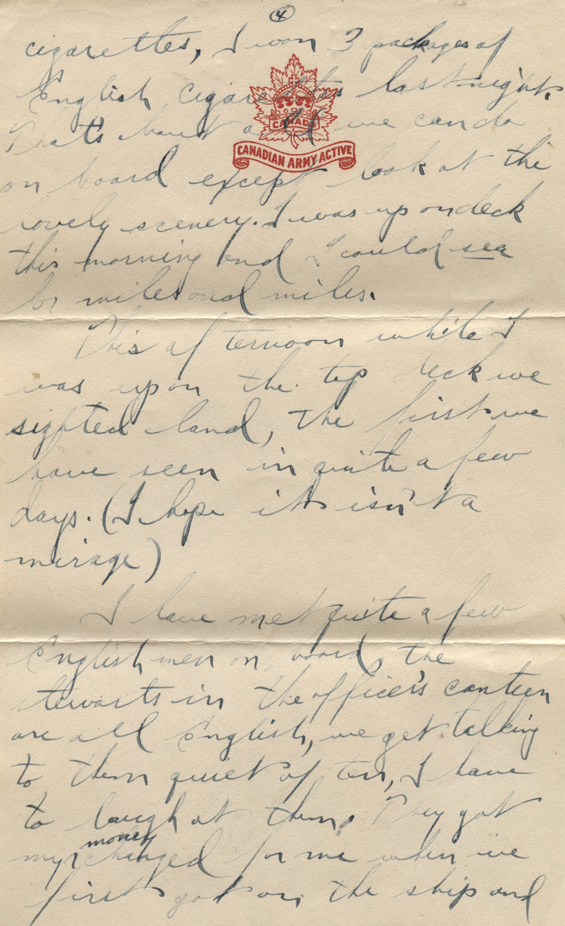 4
cigarettes, I won 3 packages of
English cigarettes last night.
CANADA
That's bout all we can do
CANADIAN ARMY ACTIVE
on board except look at the
lovely scenery. I was up on deck
this morning and I could sea
for miles and miles.
This afternoon while I
was upon the top deck we
sighted land, the first we
have seen in quite a few
days. (I hope its isn't a
mirage)
I have met quite a few
English men on board, the
stewarts in the officer's canteen
are all English, we get talking
to them quiet often, I have
to laugh at them. They got
money
my changed for me when we
first got on the ship and